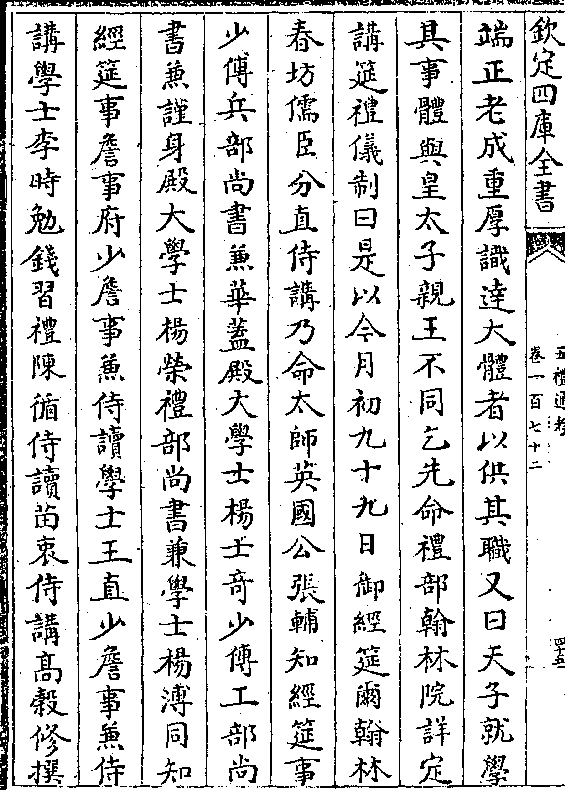 欽定四庫全書
五禮通考
卷一百七十二
端正老成重厚識達大體者以供其職又曰天子就學
其事體與皇太子親王不同乞先命禮部翰林院詳定
講筵禮儀制曰是以今月初九十九日御經筵爾翰林
春坊儒臣分直侍講乃命太師英國公張輔知經筵事
少傅兵部尚書兼華蓋殿大學士楊士奇少傅工部尚
書兼謹身殿大學士楊榮禮部尚書兼學士楊溥同知
經筵事詹事府少詹事兼侍讀學士王直少詹事兼侍
講學士李時勉錢習禮陳循侍讀苗衷侍講高穀修撰